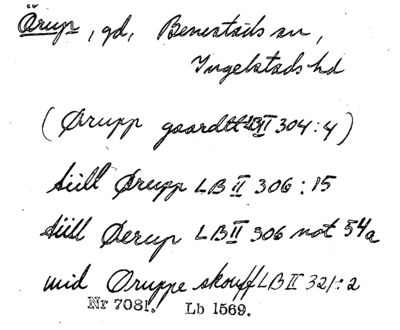 Örup, gd, Benestads sn,
Ingelstads hd
(Ørupp gaardtt LB II 304:4)
tiill Ørupp LB II 306:15
tiill Øerup LB II 306 not 54a
wid Oruppe skouff LB II 321:2
Nr 7081. Lb 1569.